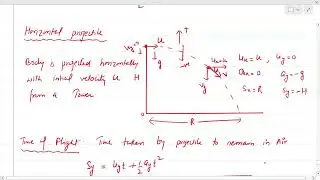 Horizontal projectile
Body is projected horizontally
with initial velocity u
from a Tower
u
g
H
R
T
Ux = u, Uy = 0
ax = 0 ay = -g
Sx = R Sy = -H
Time of Flight Time taken by projectile to remain in Air
Sy = Uyt + 1/2 ayt²